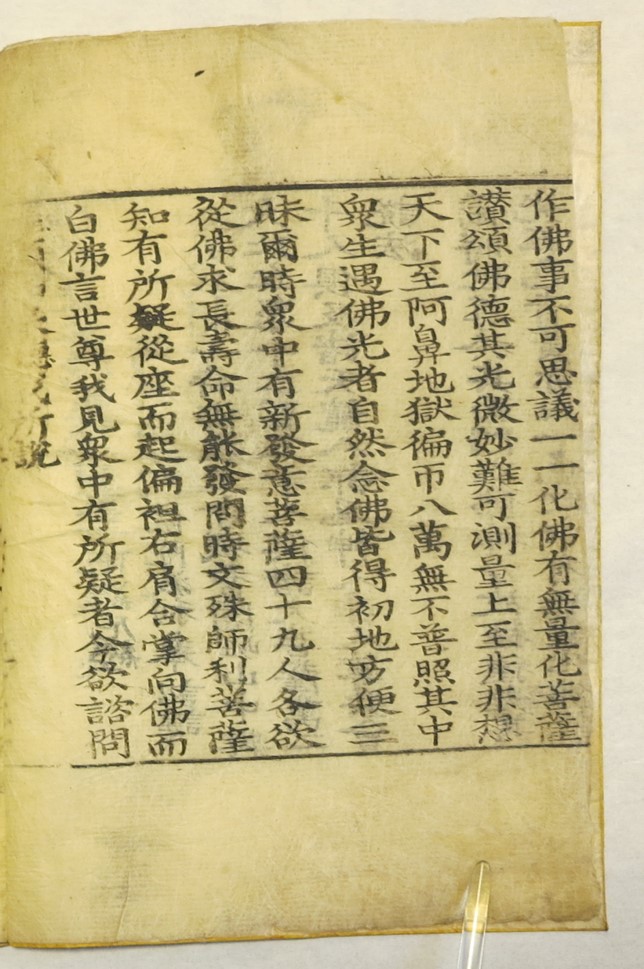 作佛事不可思議一一化佛有無量化菩薩
讃頌佛德其光微妙難可測量上至非非想
天下至阿鼻地獄徧帀八萬無不普照其中
衆生遇佛光者自然念佛皆得初地方便三
昧爾時衆中有新發意菩薩四十九人各欲
從佛求長壽命無能發問時文殊師利菩薩
知有所疑從座而起偏袒右肩合掌向佛而
白佛言世尊我見衆中有所疑者今欲諮問
所說